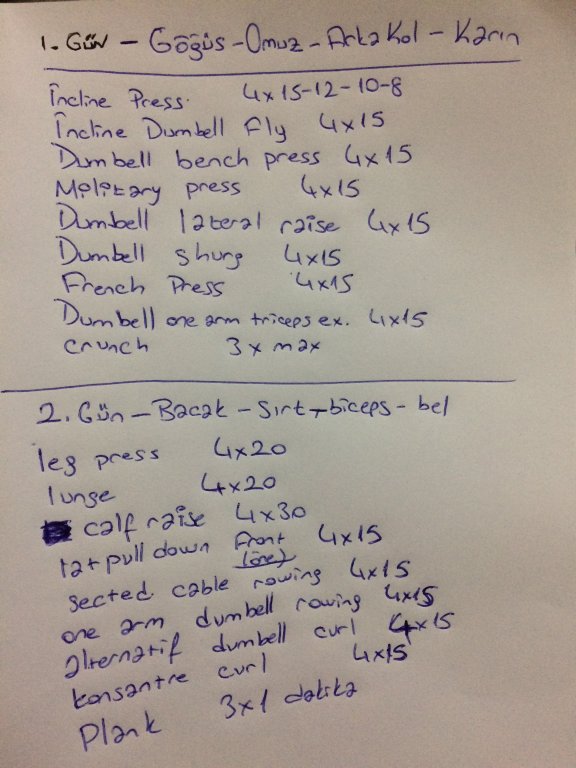 1. GÜN - Göğüs - Omuz - Arka Kol - Karın
İncline Press. 4x15-12-10-8
İncline Dumbell Fly 4x15
Dumbell bench press 4x15
Melitary press 4x15
Dumbell lateral raise 4x15
Dumbell shurg 4x15
French Press 4x15
Dumbell one arm triceps ex. 4x15
crunch 3 x max
2. Gün - Bacak - Sırt - biceps - bel
leg press 4x20
lunge 4x20
calf raise 4x30
lat pull down Front (öne) 4x15
sected cable rowing 4x15
one arm dumbell rowing 4x15
alternatif dumbell curl 4x15
konsantre curl 4x15
Plank 3x1 dakika